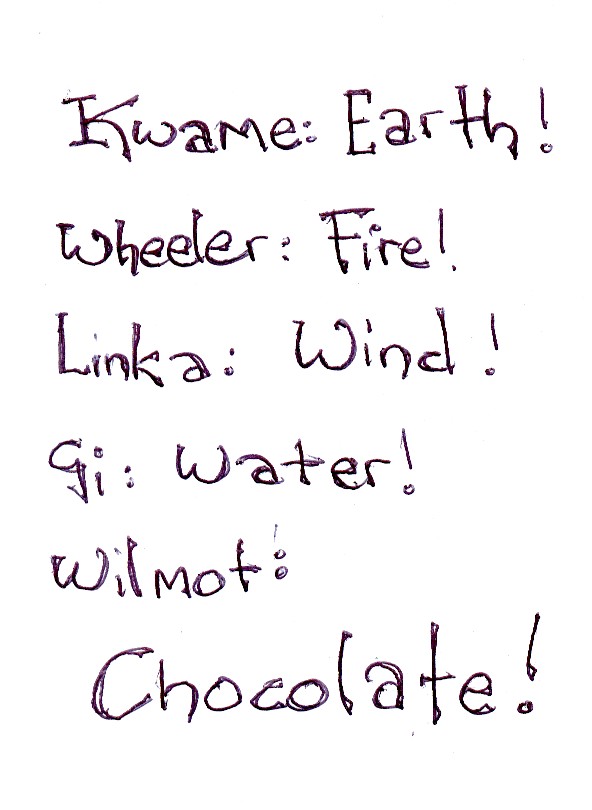 Kwame: Earth!
Wheeler: Fire!
Linka: Wind!
Gi: Water!
Wilmot:
Chocolate!